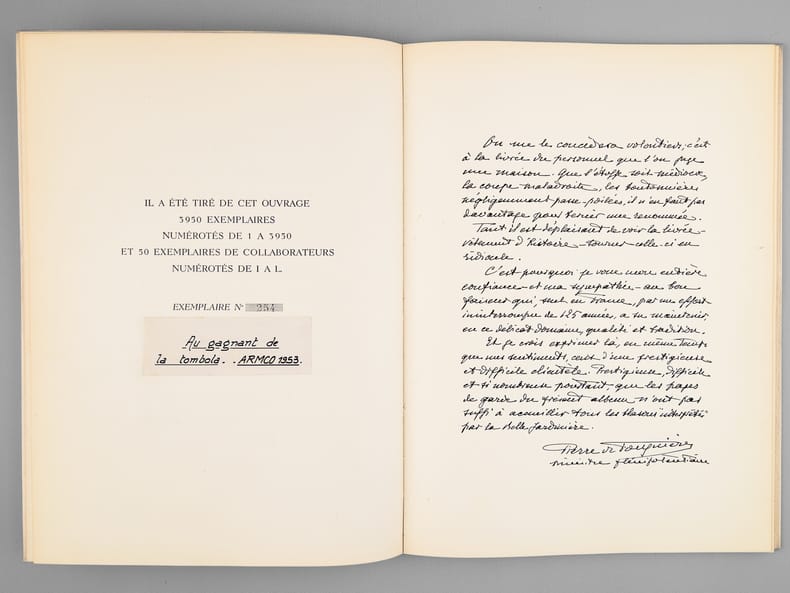 IL A ÉTÉ TIRÉ DE CET OUVRAGE
3950 EXEMPLAIRES
NUMÉROTÉS DE 1 A 3950
ET 50 EXEMPLAIRES DE COLLABORATEURS
NUMÉROTÉS DE I A L
EXEMPLAIRE N° 254
Au gagnant de
la tombola. . ARMCO 1953.
On me le concèdera volontiers, c'est
à la livrée du personnel que l'on juge
une maison. Que l'étoffe soit médiocre,
la coupe maladroite, les boutonnières
négligemment passe-poilées, il n'en faut pas
davantage pour ternir une renommée.
Tant il est déplaisant de voir la livrée -
vêtement d'histoire - tourner celle-ci en
ridicule.
C'est pourquoi je voue mon entière
confiance - et ma sympathie - au bon
faiseur qui, seul en France, par un effort
ininterrompu de 125 années, a su maintenir
en ce délicat domaine, qualité et tradition.
Et je crois exprimer là, en même temps
que mes sentiments, ceux d'une prestigieuse
et difficile clientèle. Prestigieuse, difficile
et si nombreuse pourtant, que les pages
de garde du présent album n'ont pas
suffi à accueillir tous les blasons
par la Belle Jardinière.
Pierre de
ministre plénipotentiaire